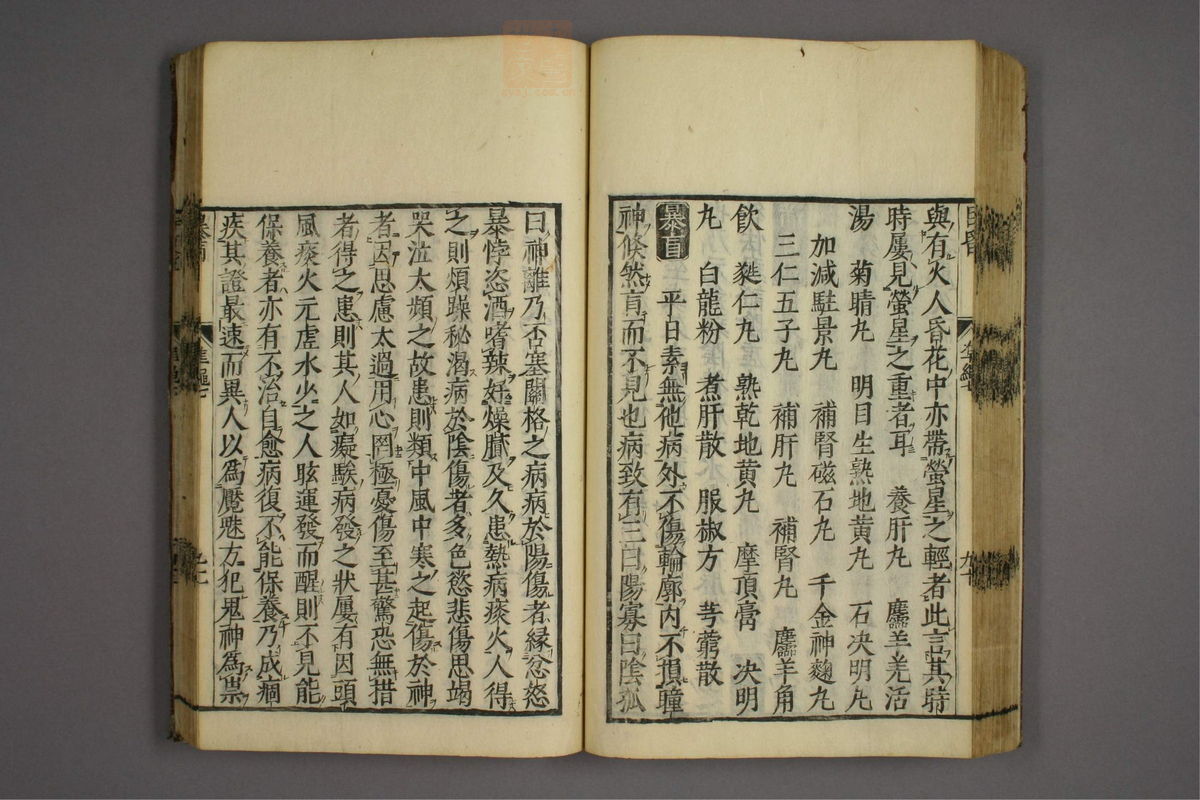 與有火人昏花中亦帶螢星之輕者此言其時
時屢見螢星之重者耳 養肝丸 麢羊羌活
湯 菊睛丸 明目生熟地黄丸 石决明丸
加減駐景丸 補腎磁石丸 千金神麴丸
三仁五子丸 補肝丸 補腎丸 麢羊角
飲 蕤仁丸 熟乾地黄丸 摩頂膏 决明
丸 白龍粉 煮肝散 服椒方 芎藭散
暴盲 平日素無他病外不傷輪廓内不損瞳
神倐然盲而不見也病致有三曰陽寡曰陰孤
曰神離乃否塞關格之病病於陽傷者縁忿怒
暴悖恣酒嗜辣好燥臓及久患熱病痰火人得
之則煩躁秘渴病於陰傷者多色慾悲傷思竭
哭泣太頻之故患則類中風中寒之起傷於神
者因思慮太過用心罔極憂傷至甚驚恐無措
者得之患則其人如癡騃病發之狀屢有因頭
風痰火元虗水少之人眩運發而醒則不見能
保養者亦有不治自愈病復不能保養乃成痼
疾其證最速而異人以爲魘魅方犯鬼神爲祟